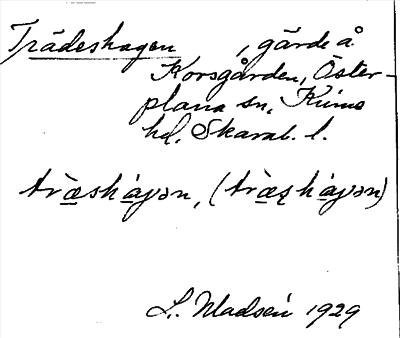 Trädeshagen, gärde å
Korsgården, Öster-
plana sn, Kinne
hd. Skarab. l.
træ̀shàgən, (træ̀ʂhàgən)
L. Madsén 1929